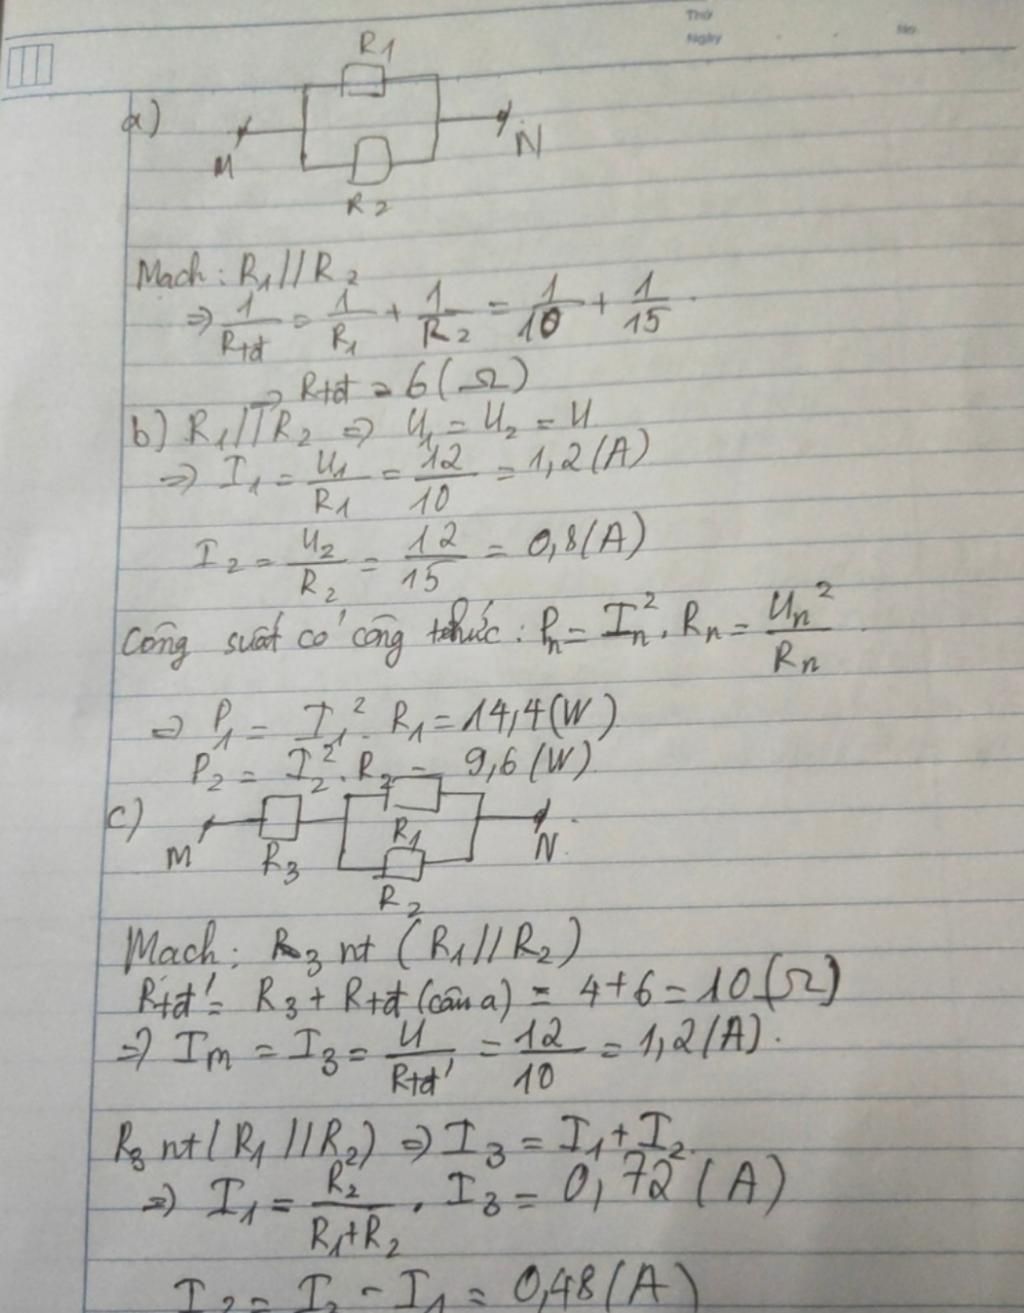 Thứ
Ngày
No.
R1
a)
M
N
R2
Mach: R₁//R₂
=> 1/Rtđ = 1/R₁ + 1/R₂ = 1/10 + 1/15.
=> Rtđ = 6(Ω)
b) R₁//R₂ => U₁ = U₂ = U
=> I₁ = U₁/R₁ = 12/10 = 1,2(A)
I₂ = U₂/R₂ = 12/15 = 0,8(A)
Công suất có công thức: Pₙ = Iₙ². Rₙ = Uₙ²/Rₙ.
=> P₁ = I₁². R₁ = 14,4(W)
P₂ = I₂². R₂ = 9,6(W)
c)
M
R3
R1
N.
R2
Mach: R₃ nt (R₁//R₂)
Rtđ' = R₃ + Rtđ (câu a) = 4+6 = 10(Ω)
=> Im = I₃ = U/Rtđ' = 12/10 = 1,2(A).
R₃ nt(R₁//R₂) => I₃ = I₁+I₂.
=> I₁ = R₂/(R₁+R₂) . I₃ = 0,72(A)
I₂ = I₃ - I₁ = 0,48(A)